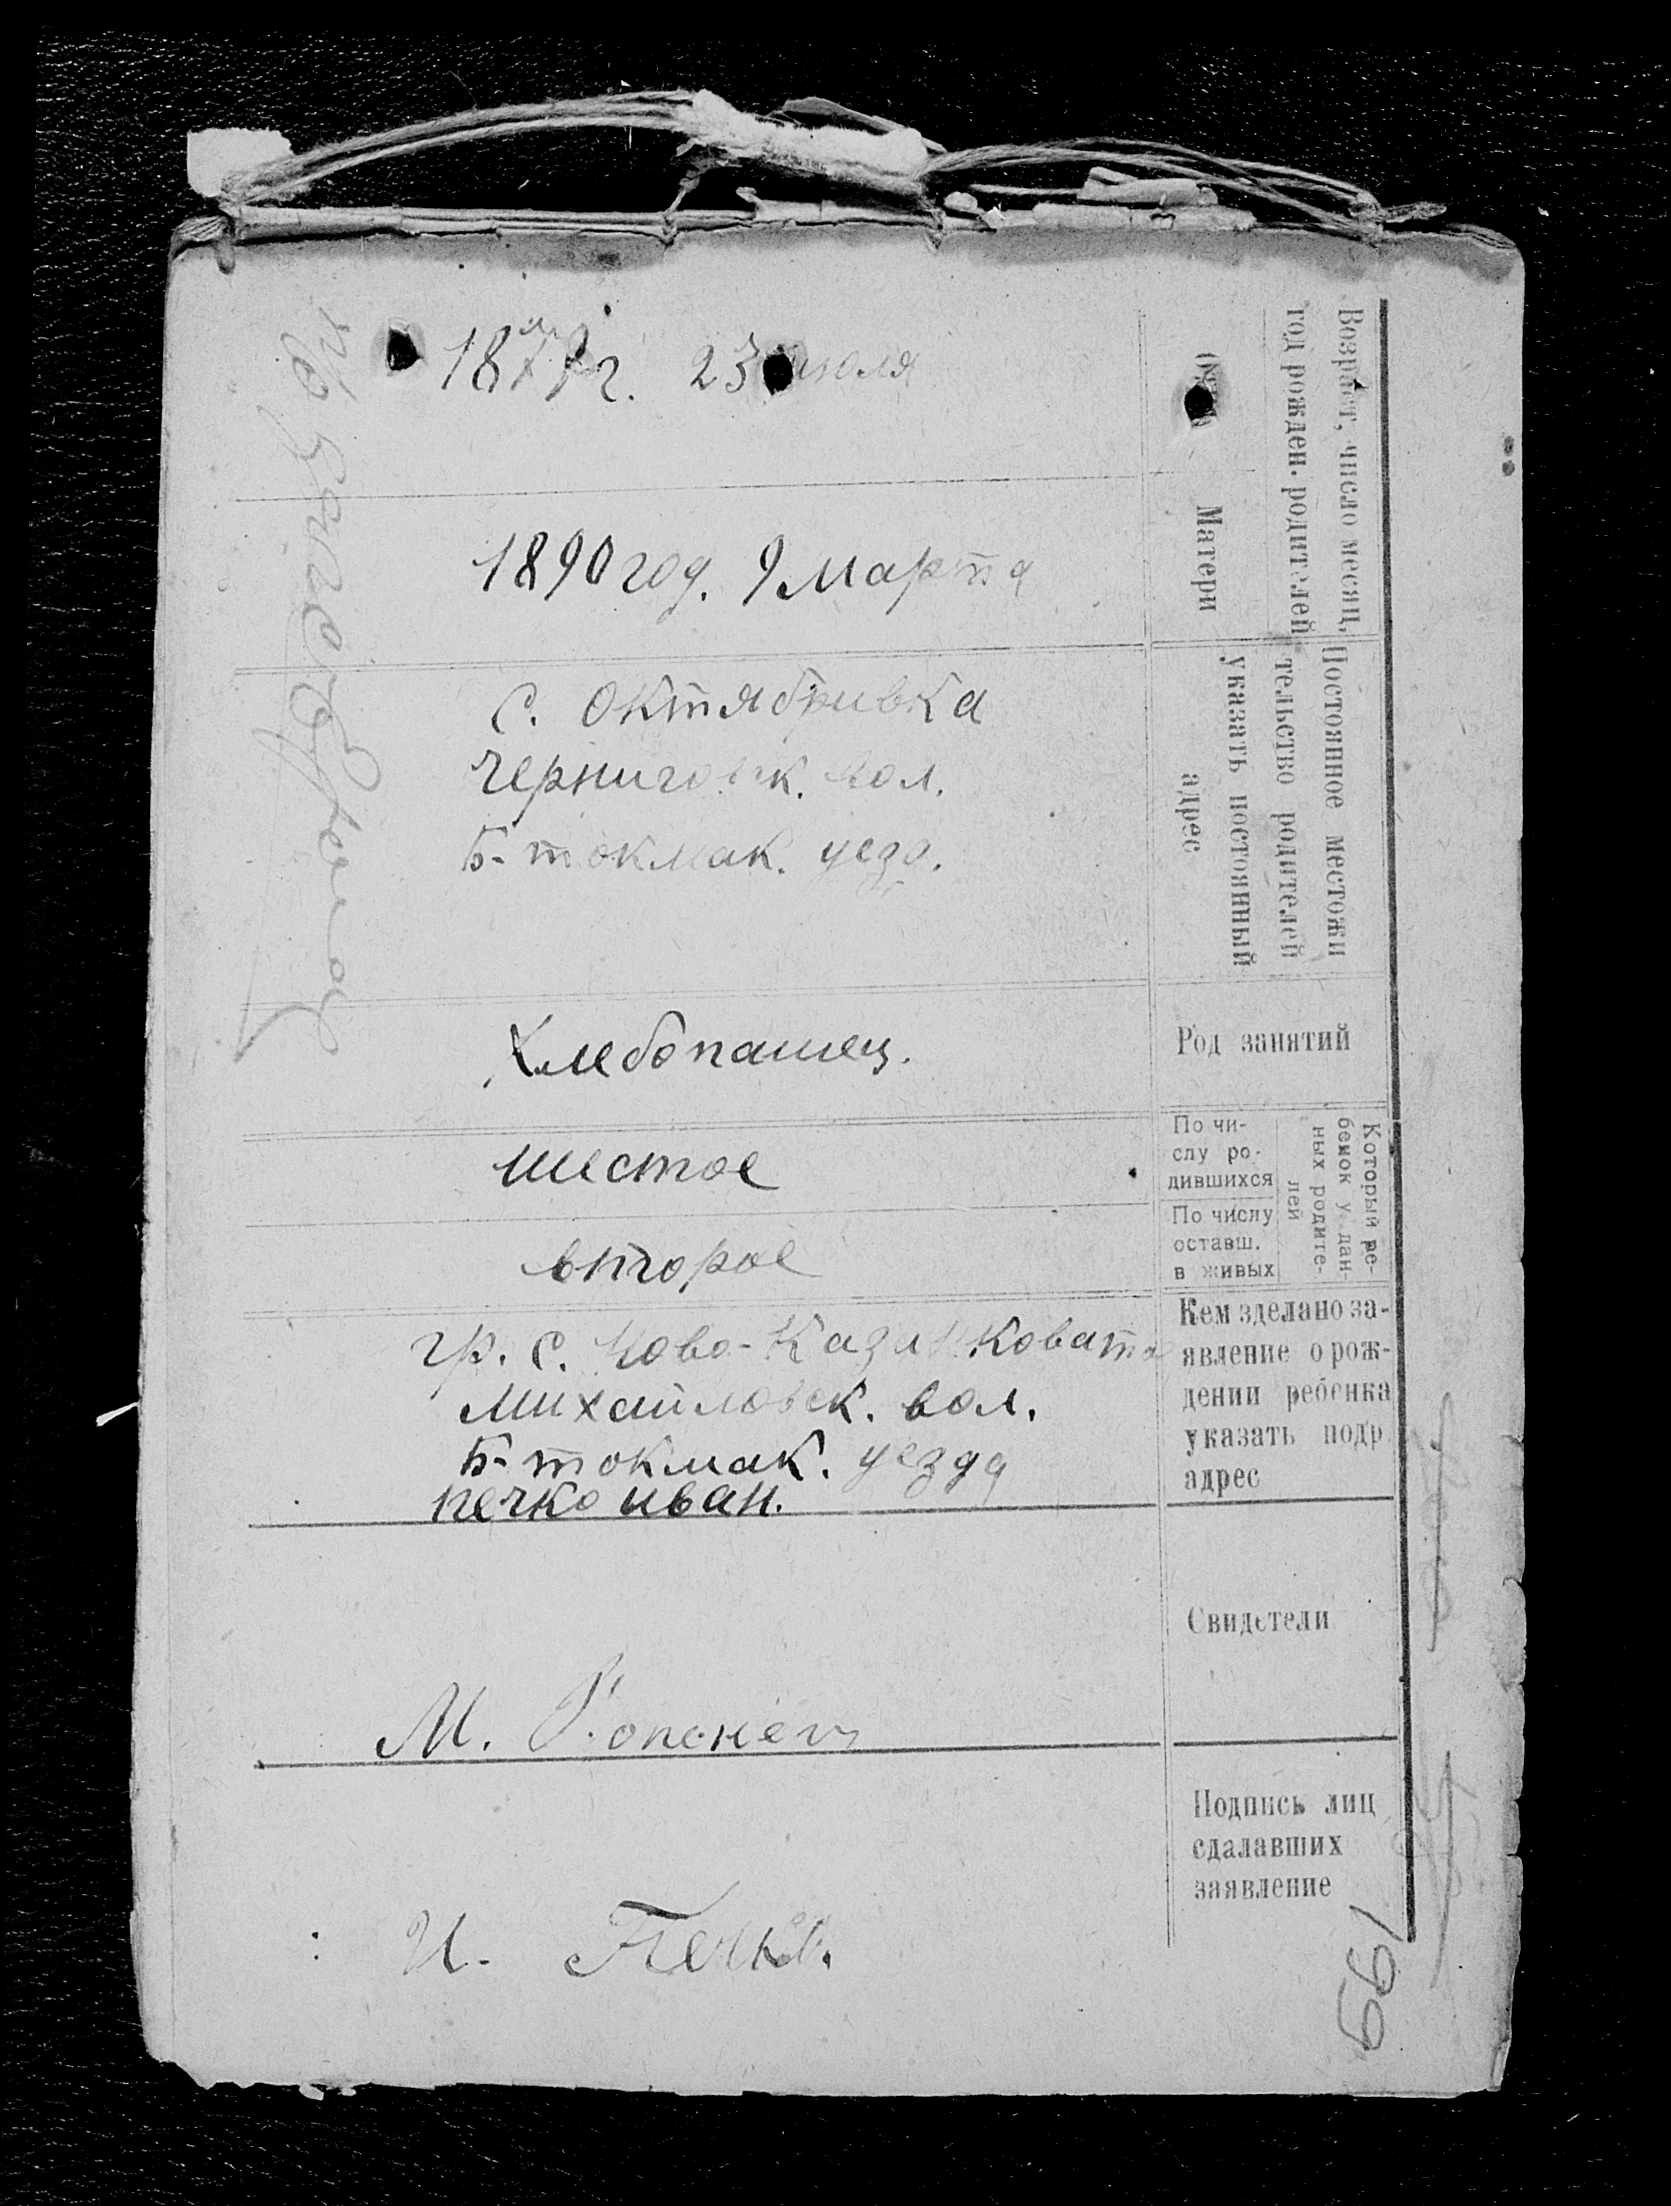 Возраст, число месяц,
год рожден. родителей
Отца
23 июля
Матери
1890 год. 9 Марта
Постоянное местожи
тельство родителей
указать постоянный
адрес
с. Октябривка
Черниговск. вол.
Б-токмак. уезд.
Род занятий
Хлебопашец.
Который ре-
бенок у дан-
ных родите-
лей
По чи-
слу ро-
дившихся
шестое
По числу
оставш.
в живых
второе
Кем зделано за-
явление о рож-
дении ребенка
указать подр.
адрес
гр. с. Ново-
Михайловск. вол.
Б-токмак. уезда
печко иван.
Свидетели
М.
Подпись лиц
сдалавших
заявление
И. Печко.
199